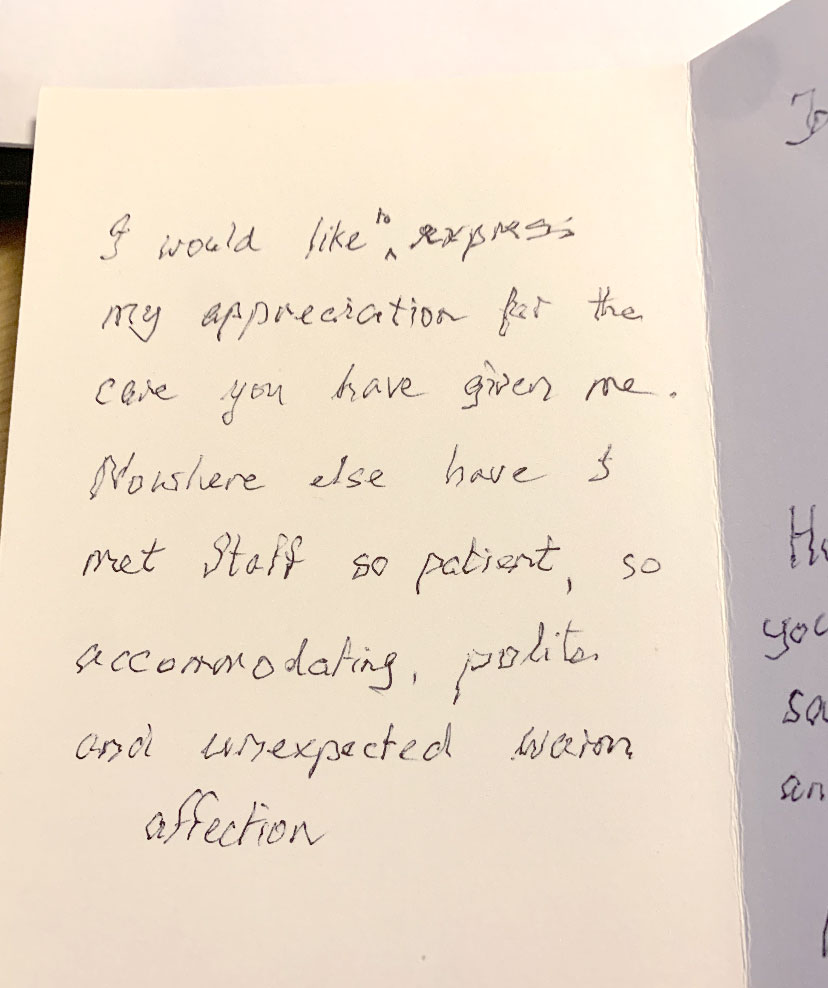 I would like to express
my appreciation for the
care you have given me.
Nowhere else have I
met Staff so patient, so
accommodating, polite
and unexpected warm
affection